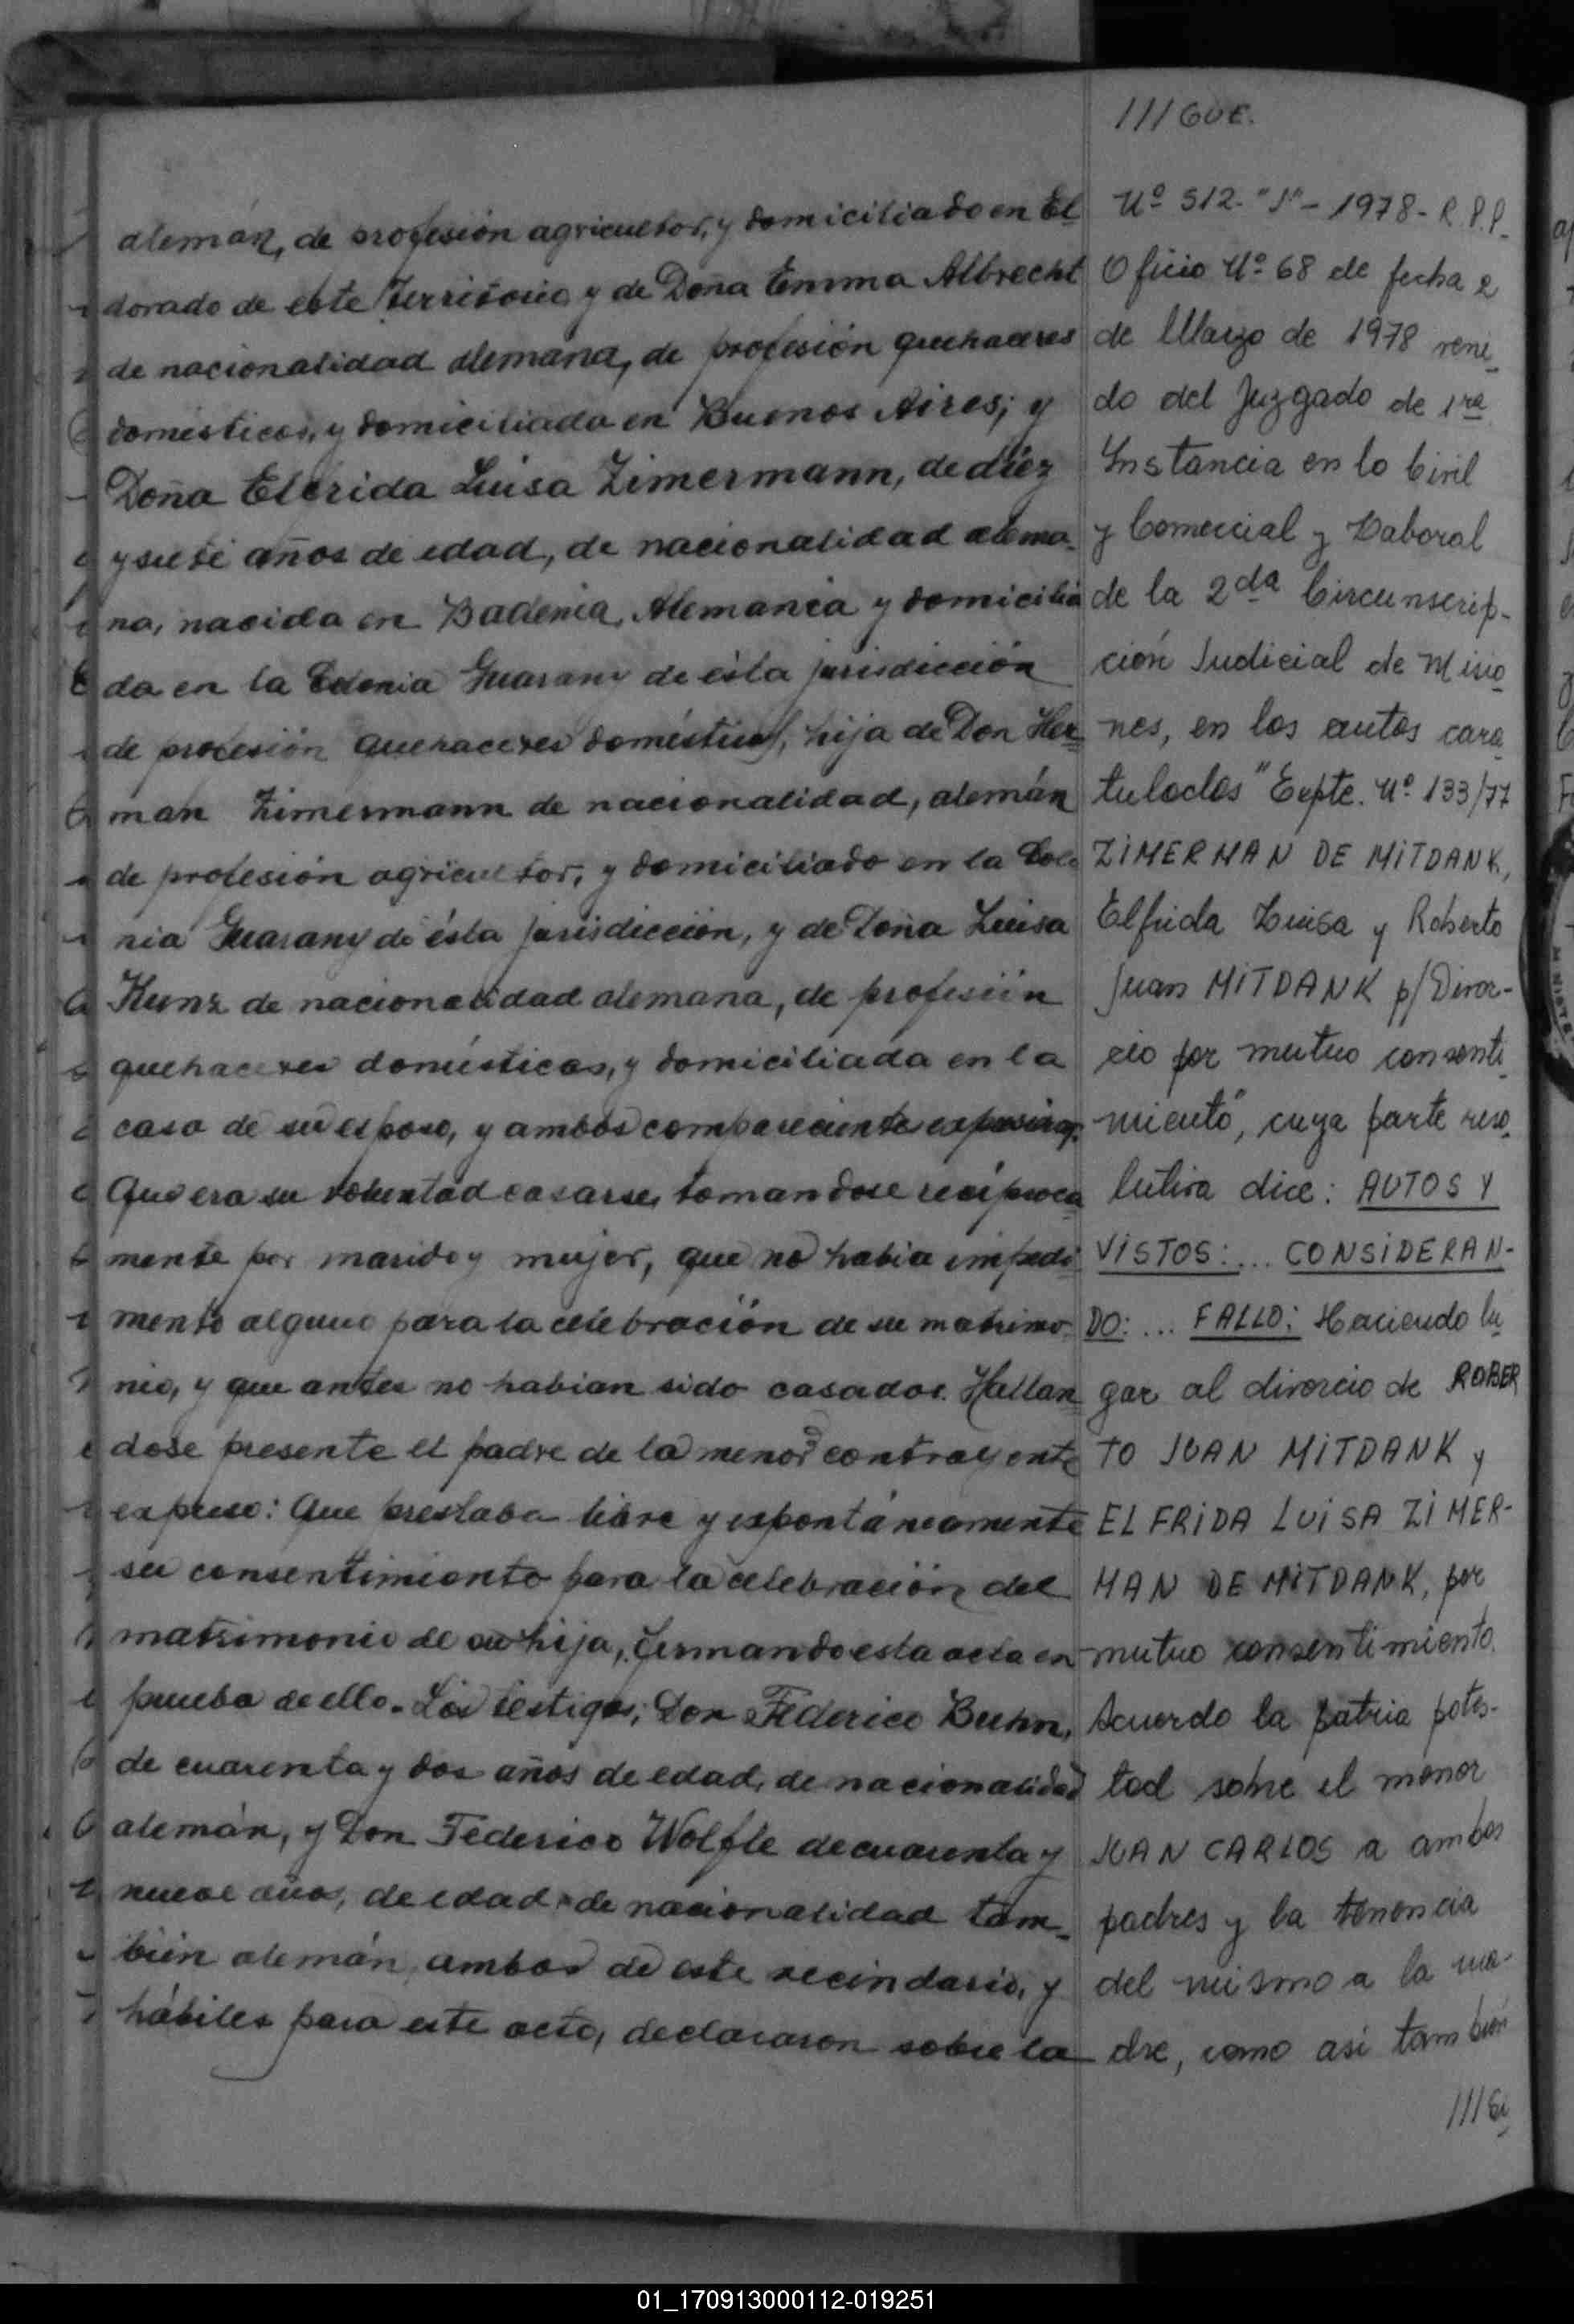 alemán, de profesión agricultor, y domiciliado en El
dorado de este Territorio y de Doña Emma Albrecht
de nacionalidad alemana, de profesión quehaceres
domésticos, y domiciliada en Buenos Aires; y
Doña Elfrida Luisa Zimermann, de diéz
y siete años de edad, de nacionalidad alema-
na, nacida en Badenia, Alemania y domicilia
da en la Colonia Guarany de ésta jurisdicción
de profesión quehaceres domésticos, hija de Don Her=
man Zimermann de nacionalidad, alemán
de profesión agricultor, y domiciliado en la Colo
nia Guarany de ésta jurisdicción, y de Doña Luisa
Kunz de nacionalidad alemana, de profesión
quehaceres domésticos, y domiciliada en la
casa de su esposo, y ambos compareciente
Que era su voluntad casarse, tomandose reciproca
mente por marido y mujer, que no habia impedi
mento alguno para la celebración de su matrimo-
nio, y que antes no habian sido casados. Hallan=
dose presente el padre de la menor contrayente
expuso: Que prestaba libre y espontáneamente
su consentimiento para la celebración del
matrimonio de su hija, firmando esta acta en
prueba de ello.- Los testigos; Don Federico Buhn,
de cuarenta y dos años de edad, de nacionalidad
alemán, y Don Federico Wolfle de cuarenta y
nueve años, de edad de nacionalidad tam-
bién alemán, ambos de este vecindario, y
hábiles para este acto, declararon sobre la
///GUE.
Nº 512-"J"- 1978- R.P.P.
Oficio Nº 68 de fecha 2
de Marzo de 1978 veni
do del Juzgado de 1ra
Instancia en lo Civil
y Comercial y Laboral
de la 2da Circunscrip-
ción Judicial de Misio
nes, en los autos cara
tulados "Expte. Nº 133/77
ZIMERMAN DE MITDANK,
Elfrida Luisa y Roberto
Juan MITDANK p/Divor-
cio por mutuo consenti
miento", cuya parte reso
lutiva dice: AUTOS Y
VISTOS:... CONSIDERAN-
DO:... FALLO: Haciendo lu
gar al divorcio de ROBER
TO JUAN MITDANK y
ELFRIDA LUISA ZIMER-
MAN DE MITDANK, por
mutuo consentimiento.
Acuerdo la patria potes-
tad sobre el menor
JUAN CARLOS a ambos
padres y la tenencia
del mismo a la ma-
dre, como así también
01_170913000112-019251